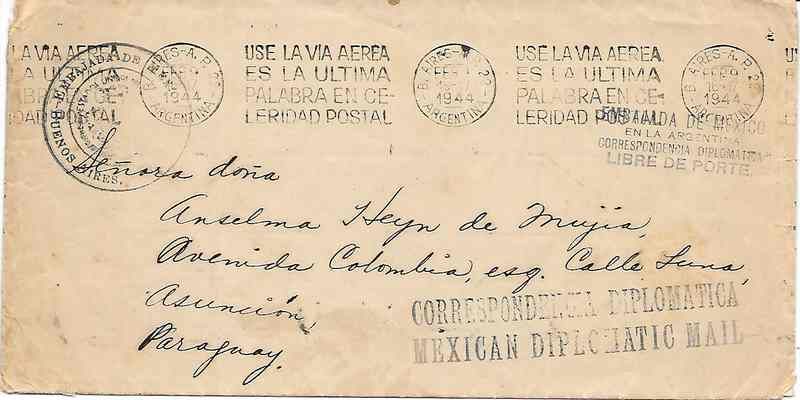 USE LA VIA AEREA
ES LA ULTIMA
PALABRA EN CE-
LERIDAD POSTAL
LA VIA AEREA
A ULTIMA
ABRA EN CE-
IDAD POSTAL
USE LA VIA AEREA
ES LA ULTIMA
PALABRA EN CE-
LERIDAD POSTAL
B. AIRES-A.P.
1944
ARGENTINA
B. AIRES
FEB
1944
ARGENTINA
B. AIRES-A.P.
FEB 9
1944
ARGENTINA
EMBAJADA DE
BUENOS AIRES.
EMBAJADA DE MEXICO
EN LA ARGENTINA
CORRESPONDENCIA DIPLOMATICA
LIBRE DE PORTE.
Señora doña
Anselma Heyn de Mujia,
Avenida Colombia, esq. Calle Luna,
Asunción,
Paraguay.
CORRESPONDENCIA DIPLOMATICA
MEXICAN DIPLOMATIC MAIL